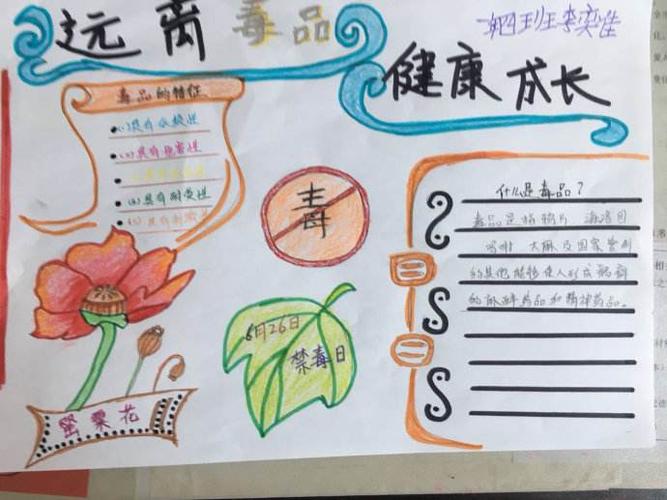 远离毒品
健康成长
毒品的特征
具有依赖性
(2)具有危害性
具有耐受性
毒
什么是毒品?
毒品是指鸦片 海洛因
吗啡 大麻及国家管制
的其他能够使人形成瘾癖
的麻醉药品和精神药品。
6月26日
禁毒日
粟花